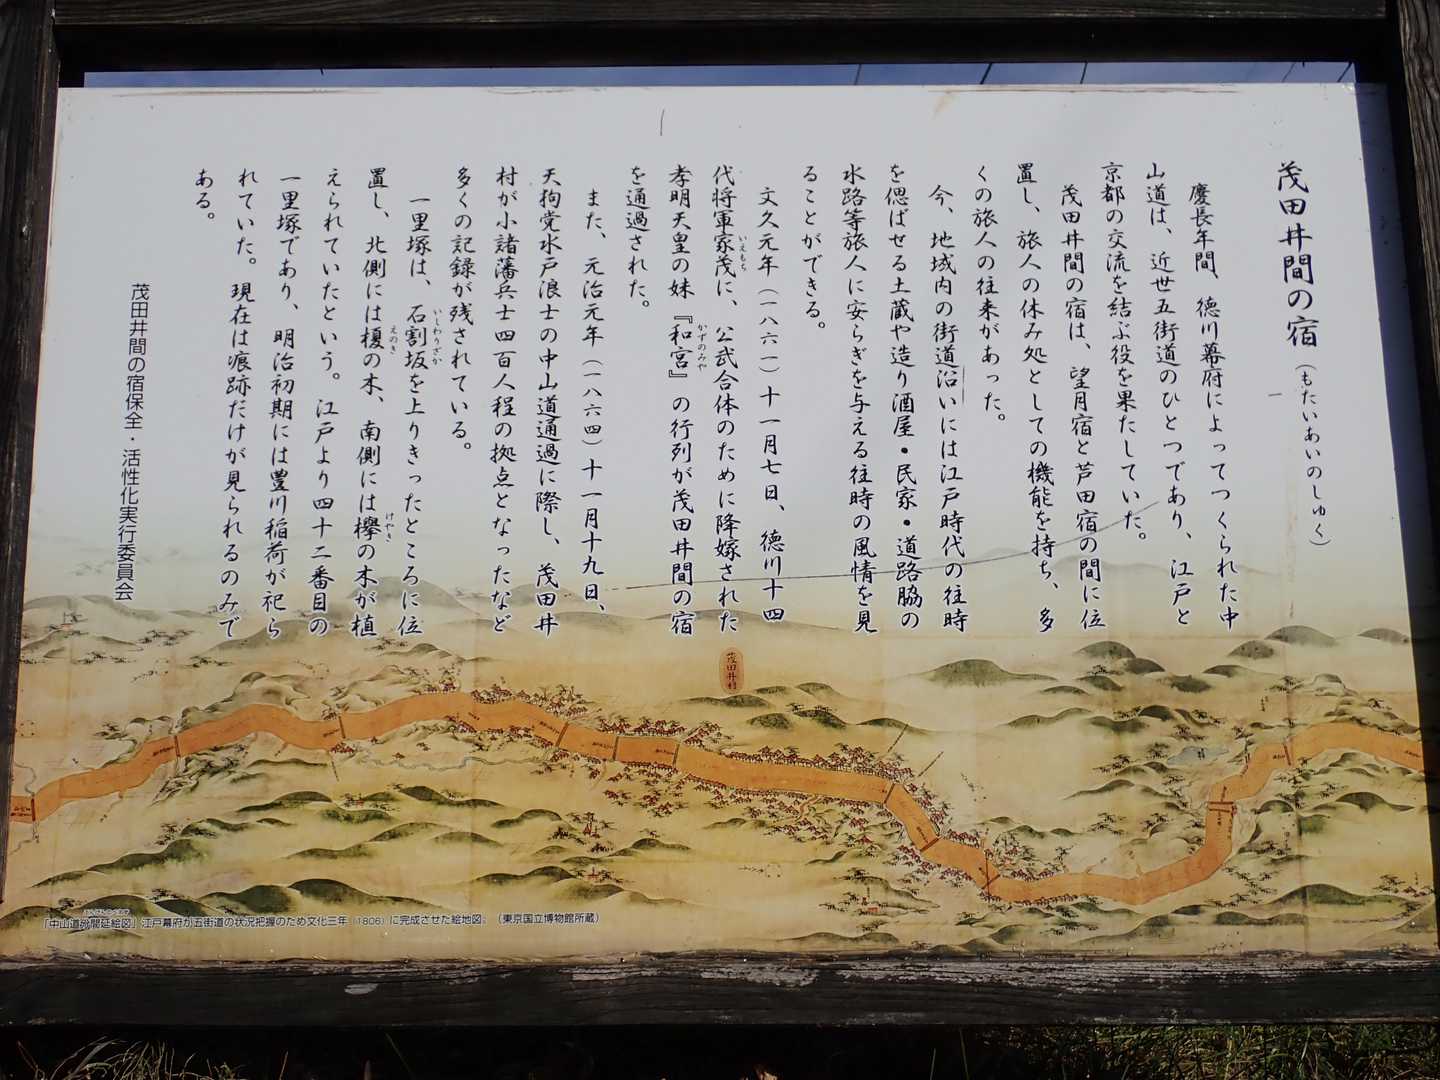 茂田井間の宿（もたいあいのしゅく）
慶長年間、徳川幕府によってつくられた中
山道は、近世五街道のひとつであり、江戸と
京都の交流を結ぶ役を果たしていた。
茂田井間の宿は、望月宿と芦田宿の間に位
置し、旅人の休み処としての機能を持ち、多
くの旅人の往来があった。
今、地域内の街道沿いには江戸時代の往時
を偲ばせる土蔵や造り酒屋・民家・道路脇の
水路等旅人に安らぎを与える往時の風情を見
ることができる。
文久元年（一八六一）十一月七日、徳川十四
代将軍家茂に、公武合体のために降嫁された
いえもち
孝明天皇の妹『和宮』の行列が茂田井間の宿
かずのみや
を通過された。
また、元治元年（一八六四）十一月十九日、
天狗党水戸浪士の中山道通過に際し、茂田井
村が小諸藩兵士四百人程の拠点となったなど
多くの記録が残されている。
一里塚は、石割坂を上りきったところに位
いしわりざか
置し、北側には榎の木、南側には欅の木が植
えのき
けやき
えられていたという。江戸より四十二番目の
一里塚であり、明治初期には豊川稲荷が祀ら
れていた。現在は痕跡だけが見られるのみで
ある。
茂田井間の宿保全・活性化実行委員会
茂田井村
「中山道分間延絵図」江戸幕府が五街道の状況把握のため文化三年（1806）に完成させた絵地図。（東京国立博物館所蔵）